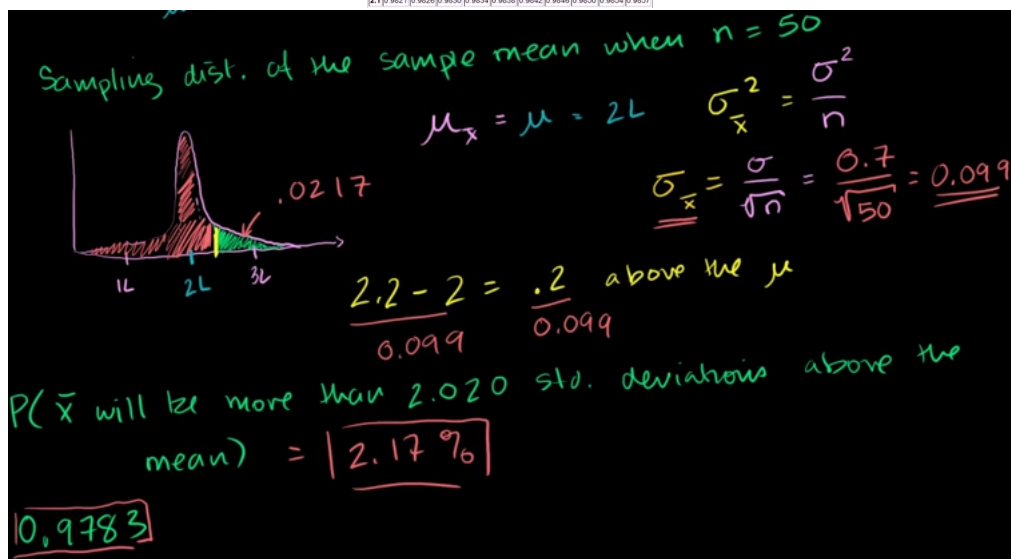 2.1 0.9821 0.9826 0.9830 0.9834 0.9838 0.9842 0.9846 0.9850 0.9854 0.9857
Sampling dist. of the sample mean when n = 50
μx̄ = μ = 2L
σx̄² = σ²/n
σx̄ = σ/√n = 0.7/√50 = 0.099
.0217
1L 2L 3L
2.2 - 2 = .2 above the μ
0.099 0.099
P( x̄ will be more than 2.020 std. deviations above the
mean) = 2.17%
0.9783